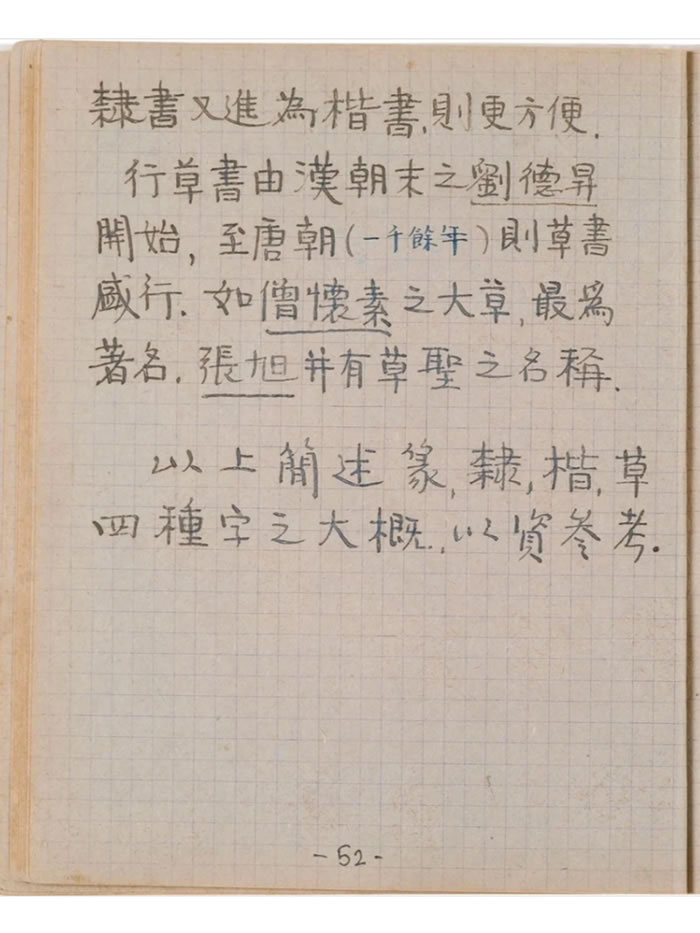 隸書又進為楷書,則更方便.
行草書由漢朝末之劉德昇
開始,至唐朝(一千餘年)則草書
盛行.如僧懷素之大草,最為
著名.張旭并有草聖之名稱.
以上簡述篆,隸,楷,草
四種字之大概.,以資參考.
-52-